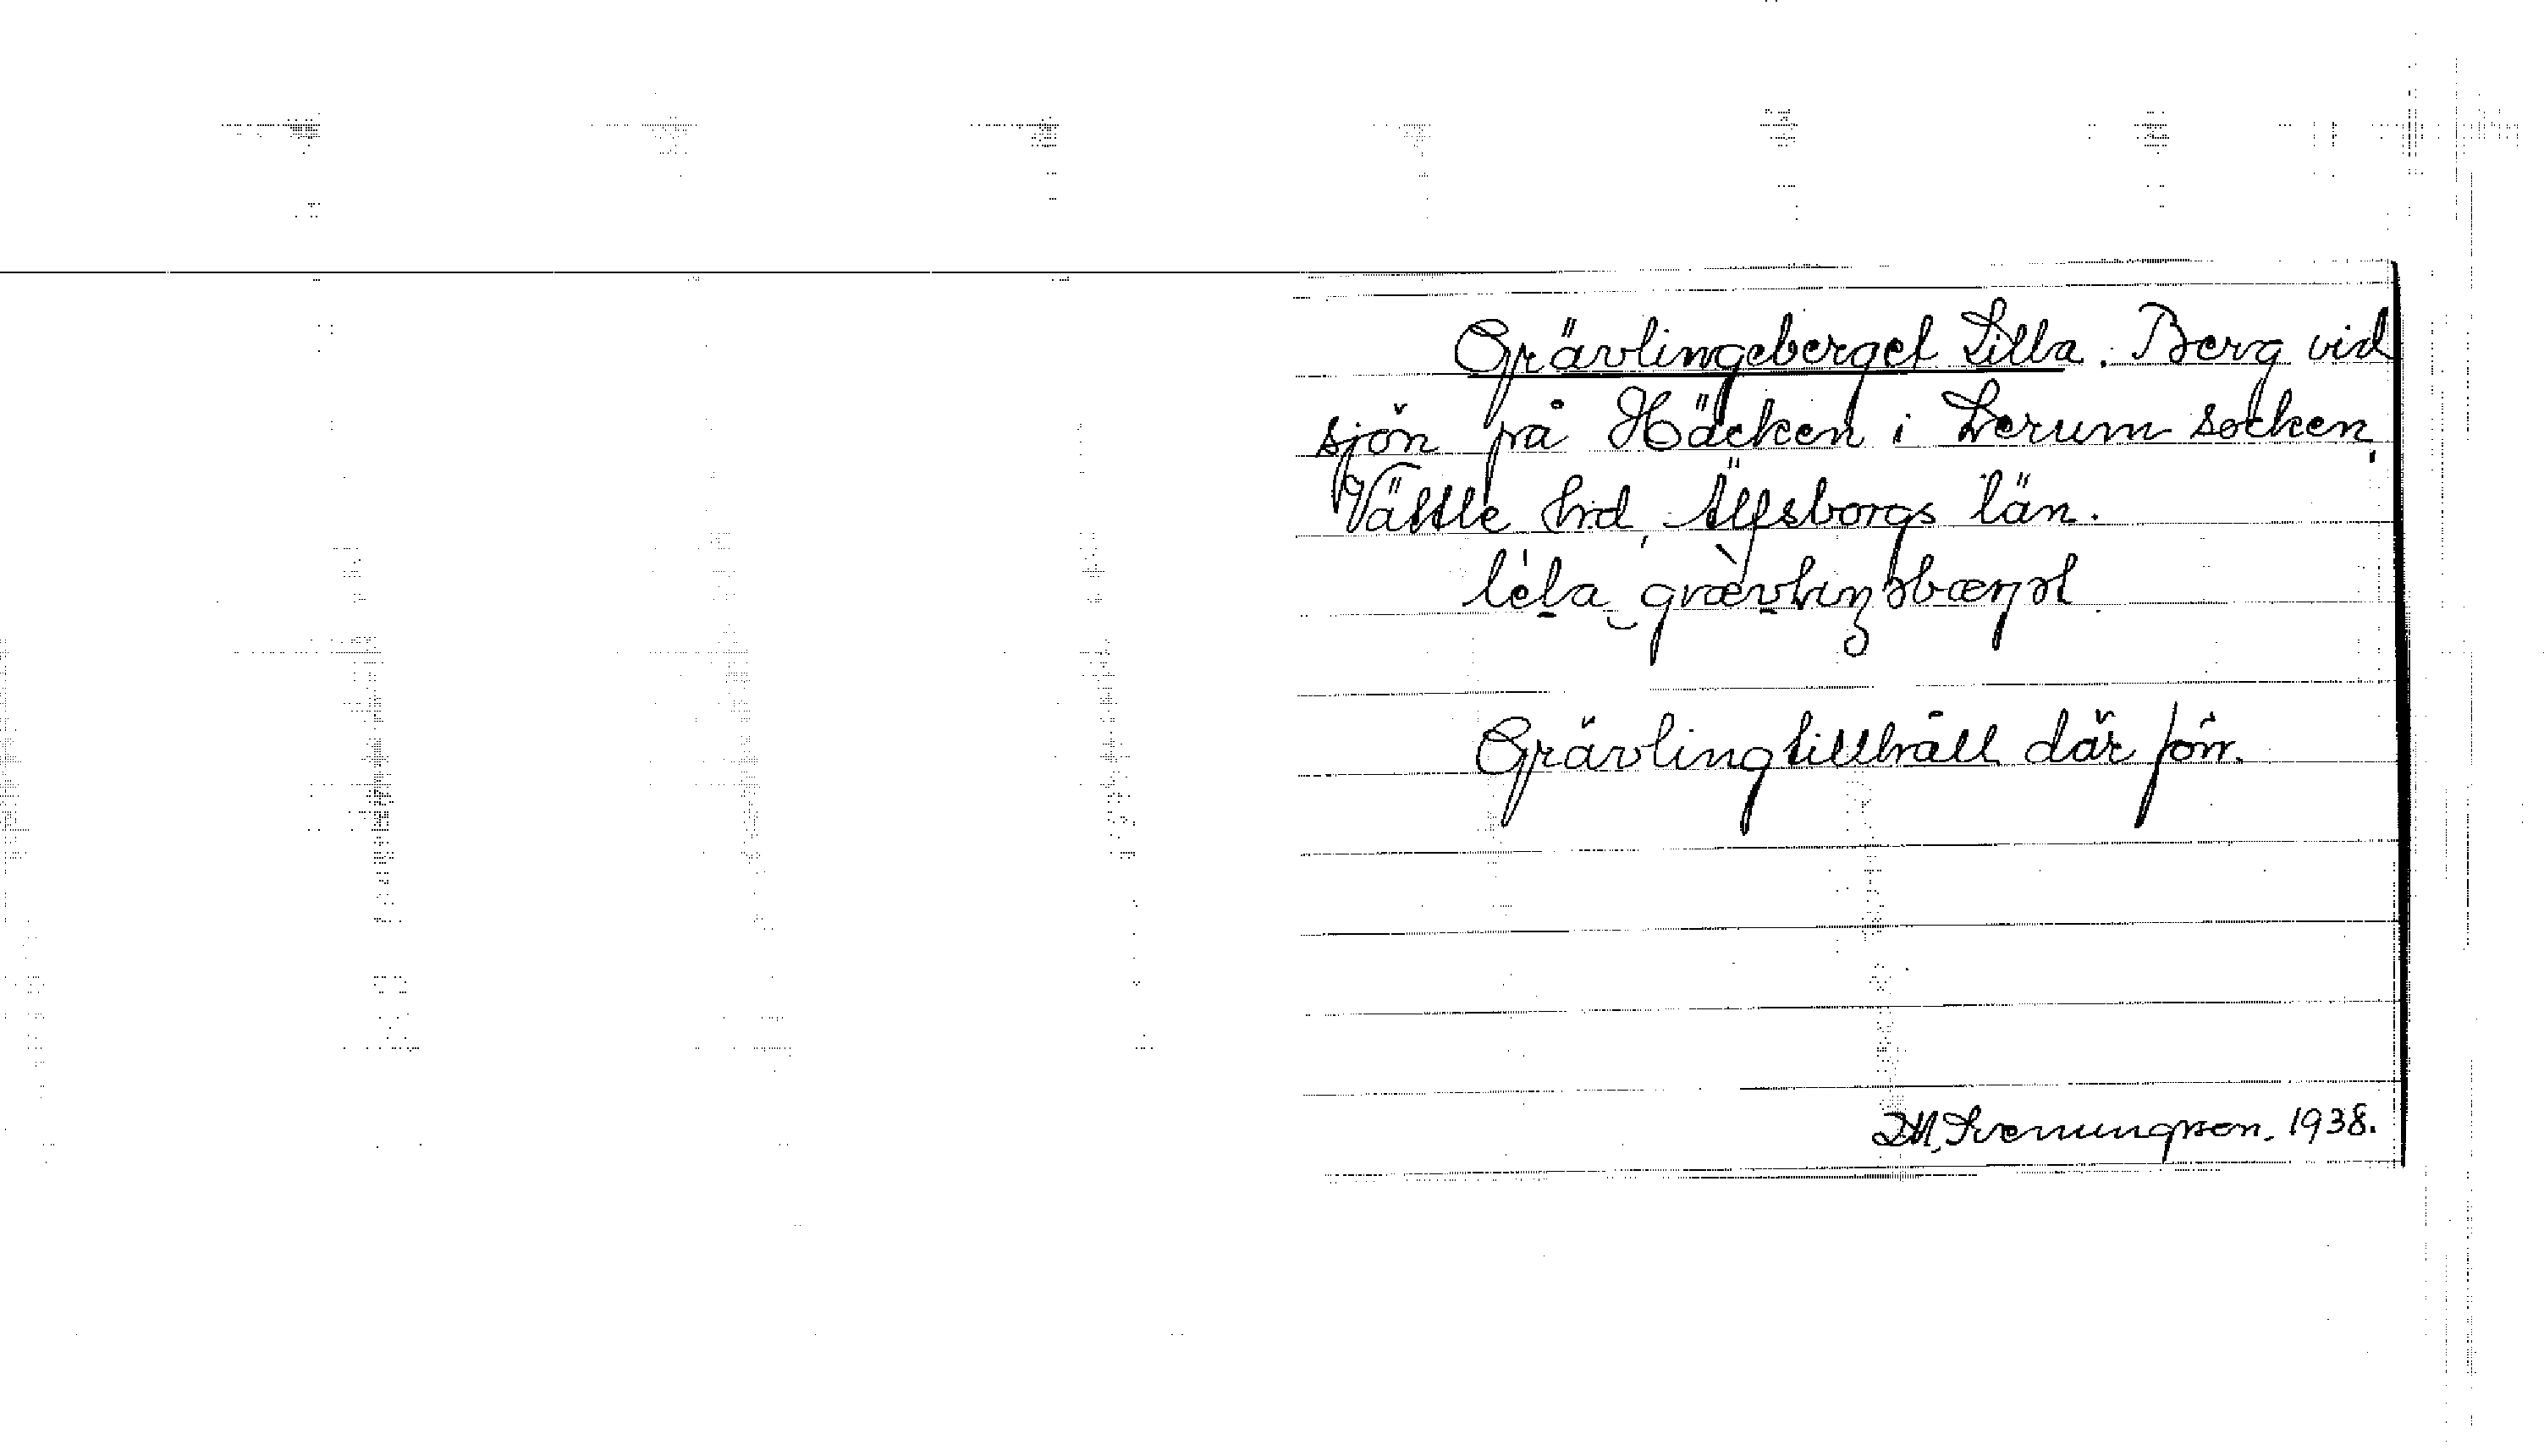 Grävlingeberget Lilla. Berg vid
sjön på Häcken i Lerum socken,
Vättle hrd, Älfsborgs län.
léla grævliŋəbærjət
Grävlingtillhåll där förr.
Svenungson. 1938.